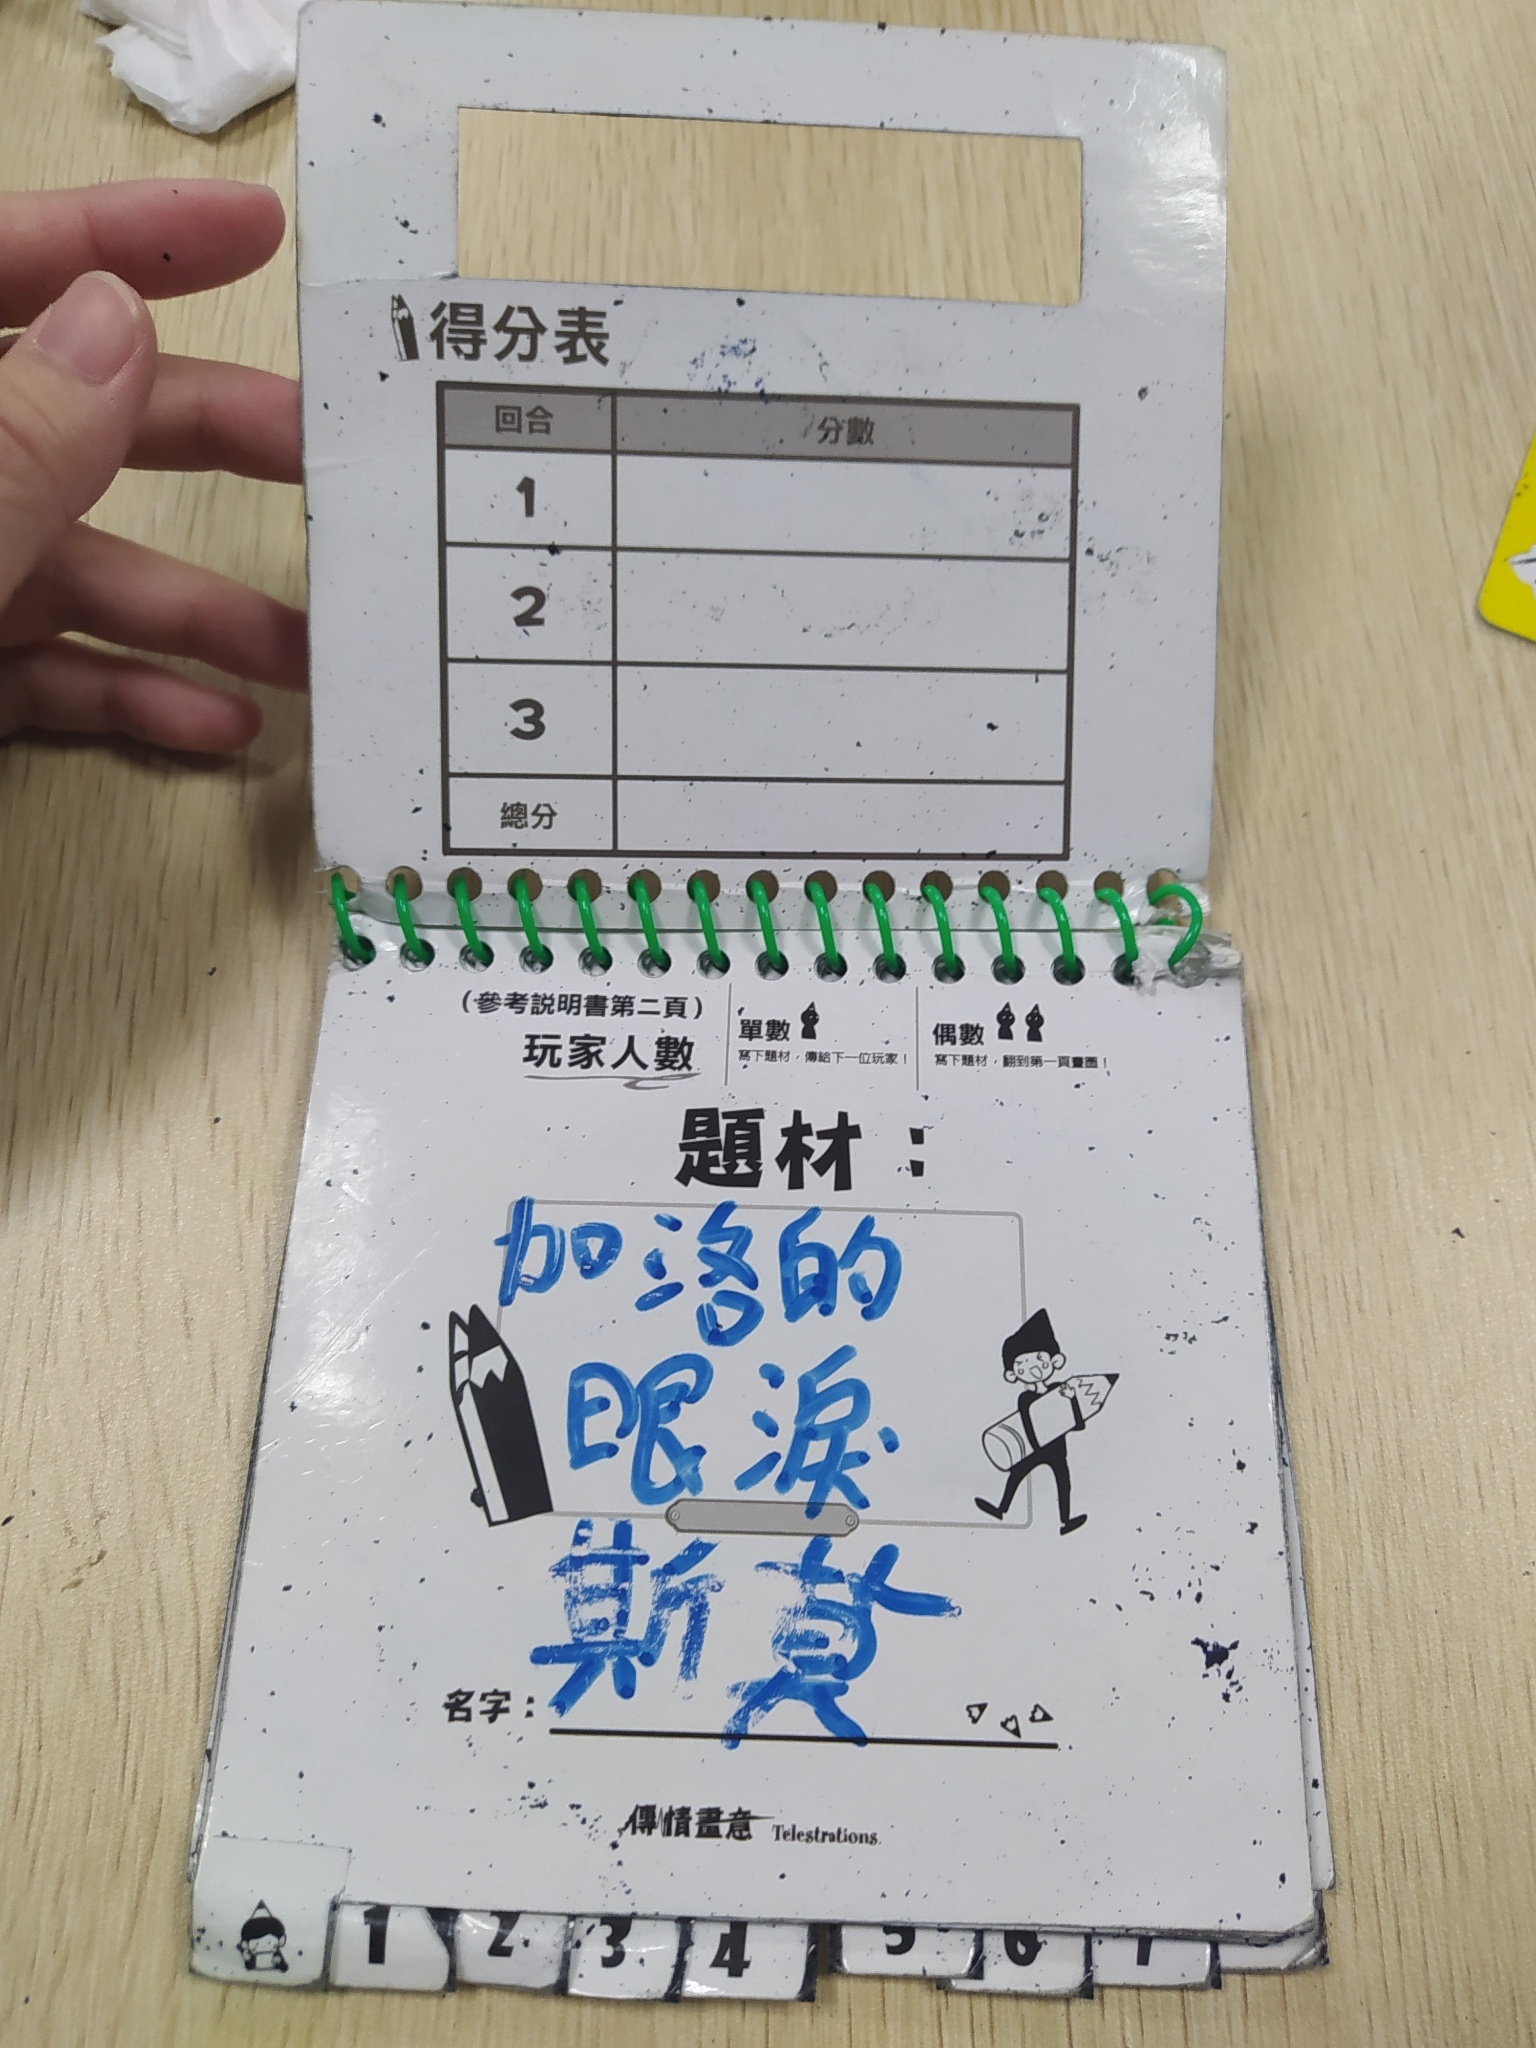 得分表
回合 分數
1
2
3
總分
(參考説明書第二頁)
玩家人數
單數
寫下題材，傳給下一位玩家！
偶數
寫下題材，翻到第一頁畫畫！
題材：
加洛的
眼淚
名字：斯莫
傳情畫意 Telestrations
1 2 3 4 5 6 7